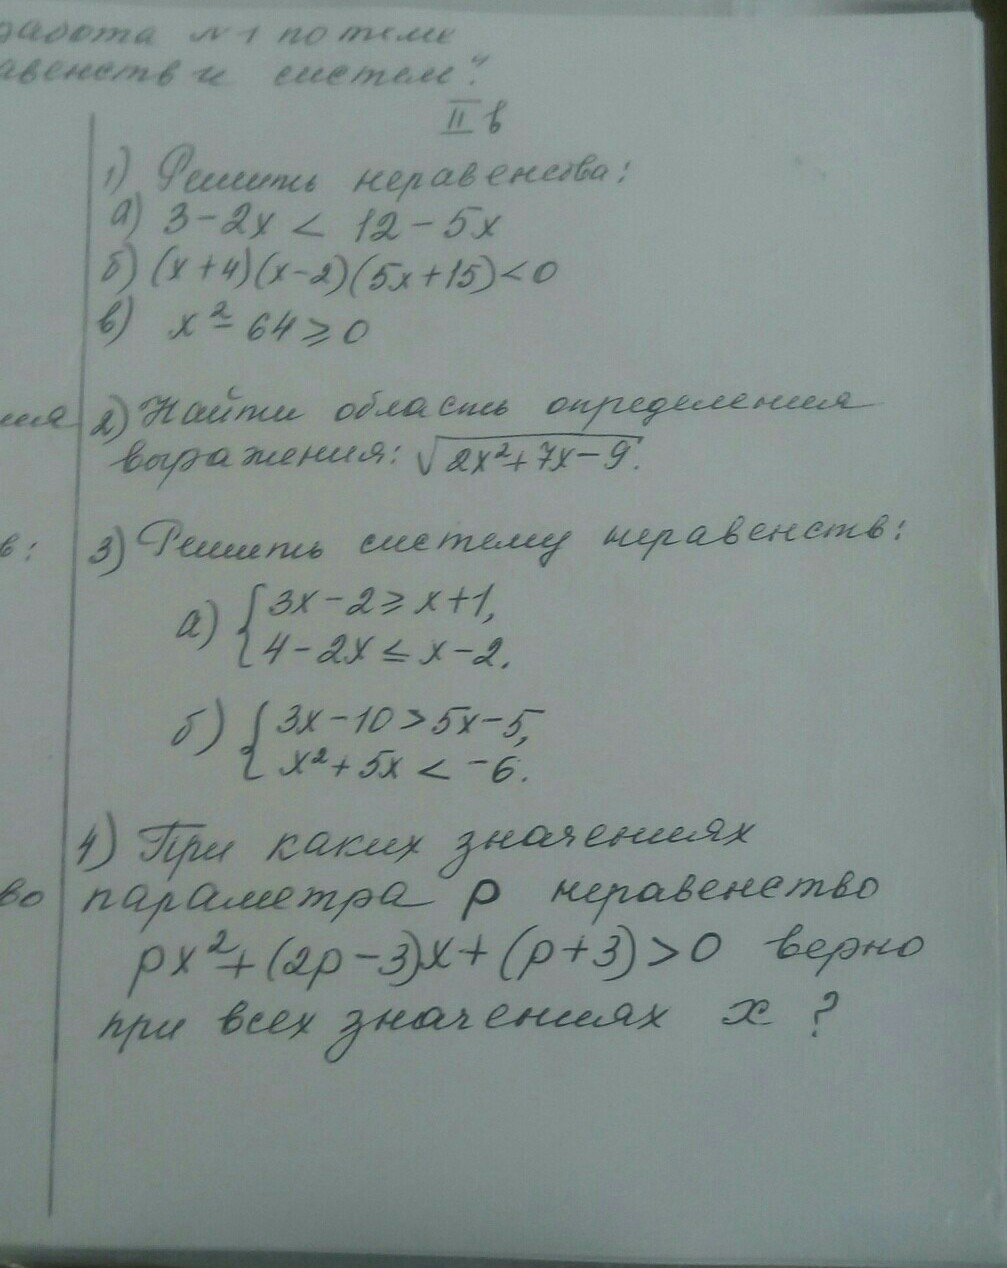 работа №1 по теме
авенств и систем".
II в
1) Решить неравенства:
а) 3-2x < 12-5x
б) (x+4)(x-2)(5x+15)<0
в) x²-64⩾0
ия
2) Найти область определения
выражения: √2x²+7x-9.
в:
3) Решить систему неравенств:
а) { 3x-2⩾x+1,
4-2x⩽x-2.
б) { 3x-10>5x-5,
x²+5x<-6.
4) При каких значениях
во
параметра p неравенство
px²+(2p-3)x+(p+3)>0 верно
при всех значениях x ?